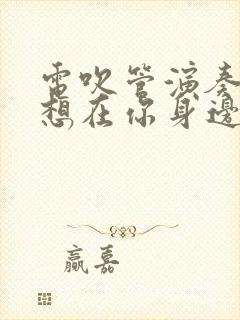 電吹管演奏
想在你身邊
贏嘉